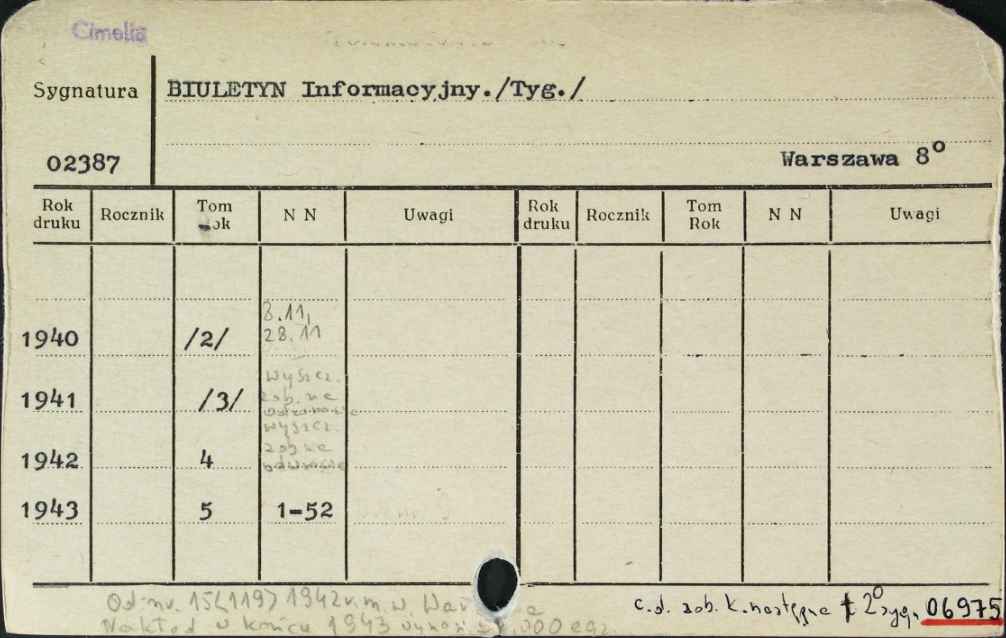 Cimelia
Sygnatura BIULETYN Informacyjny./Tyg./
02387 Warszawa 8°
Rok druku Rocznik Tom Rok N N Uwagi Rok druku Rocznik Tom Rok N N Uwagi
1940 /2/ 8.11, 28.11
1941 /3/ wyszcz. zob. na odwrocie
1942 4 wyszcz. zob. na odwrocie
1943 5 1-52
Od nr. 15(119) 1942 r. m. w.
Nakład w końcu 1943 000 egz.
c.d. zob. k. następne 2° sygn. 06975